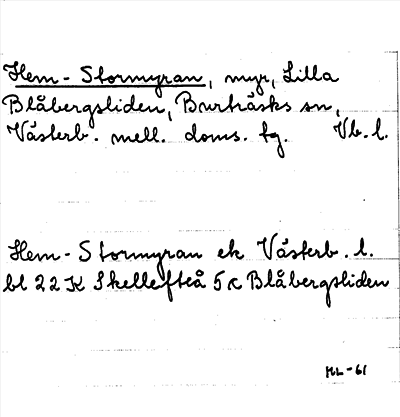 Hem-Stormyran, myr, Lilla
Blåbergsliden, Burträsks sn,
Västerb. mell. doms. tg. Vb. l.
Hem-Stormyran ek Västerb. l.
bl 22 K Skellefteå 5 c Blåbergsliden
HL-61